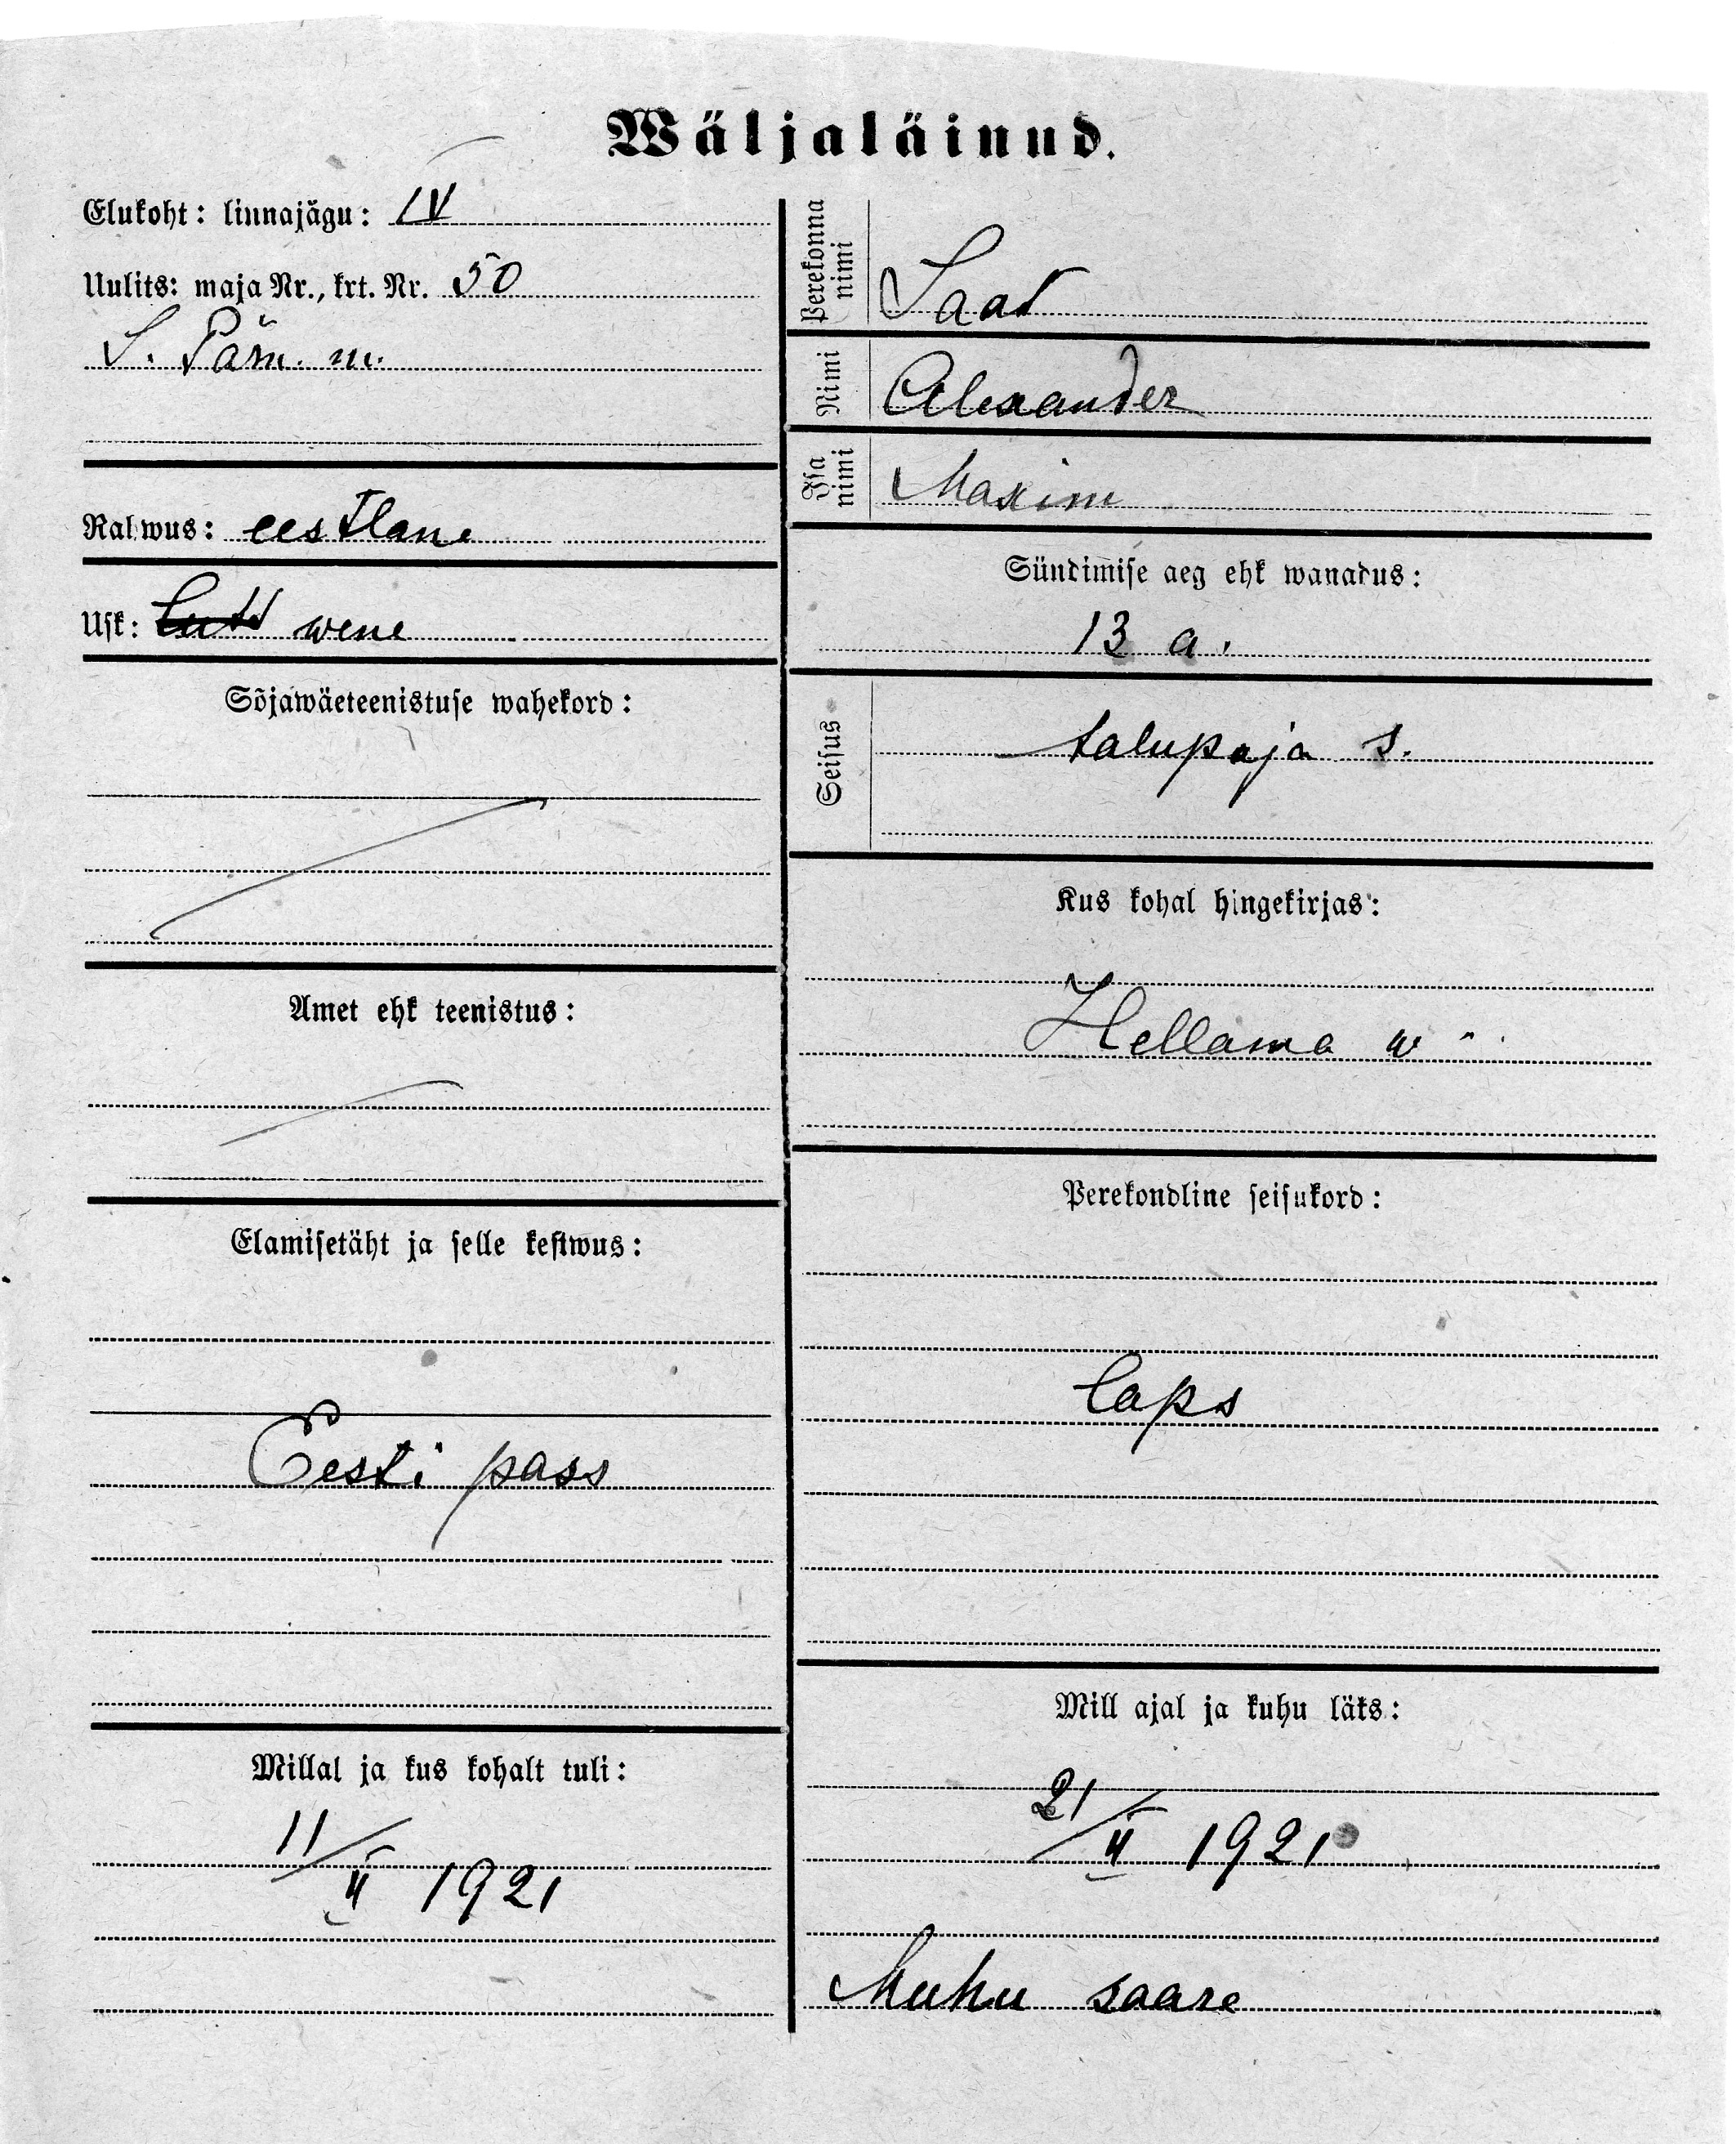 Wäljaläinud.
Elukoht: linnajägu: IV
Uulits: maja Nr., krt. Nr. 50
S. Pärn. m.
Rahwus: eestlane
Usk: wene
Sõjawäeteenistuse wahekord:
Amet ehk teenistus:
Elamisetäht ja selle kestwus:
Eesti pass
Millal ja kus kohalt tuli:
11/II 1921
Perekonna nimi
Saat
Nimi Alexander
Isa nimi Maxim
Sündimise aeg ehk wanadus:
13 a.
Seisus talupoja s.
Kus kohal hingekirjas:
Hellama w.
Perekondline seisukord:
laps
Mill ajal ja kuhu läks:
21/II 1921
Muhu saare